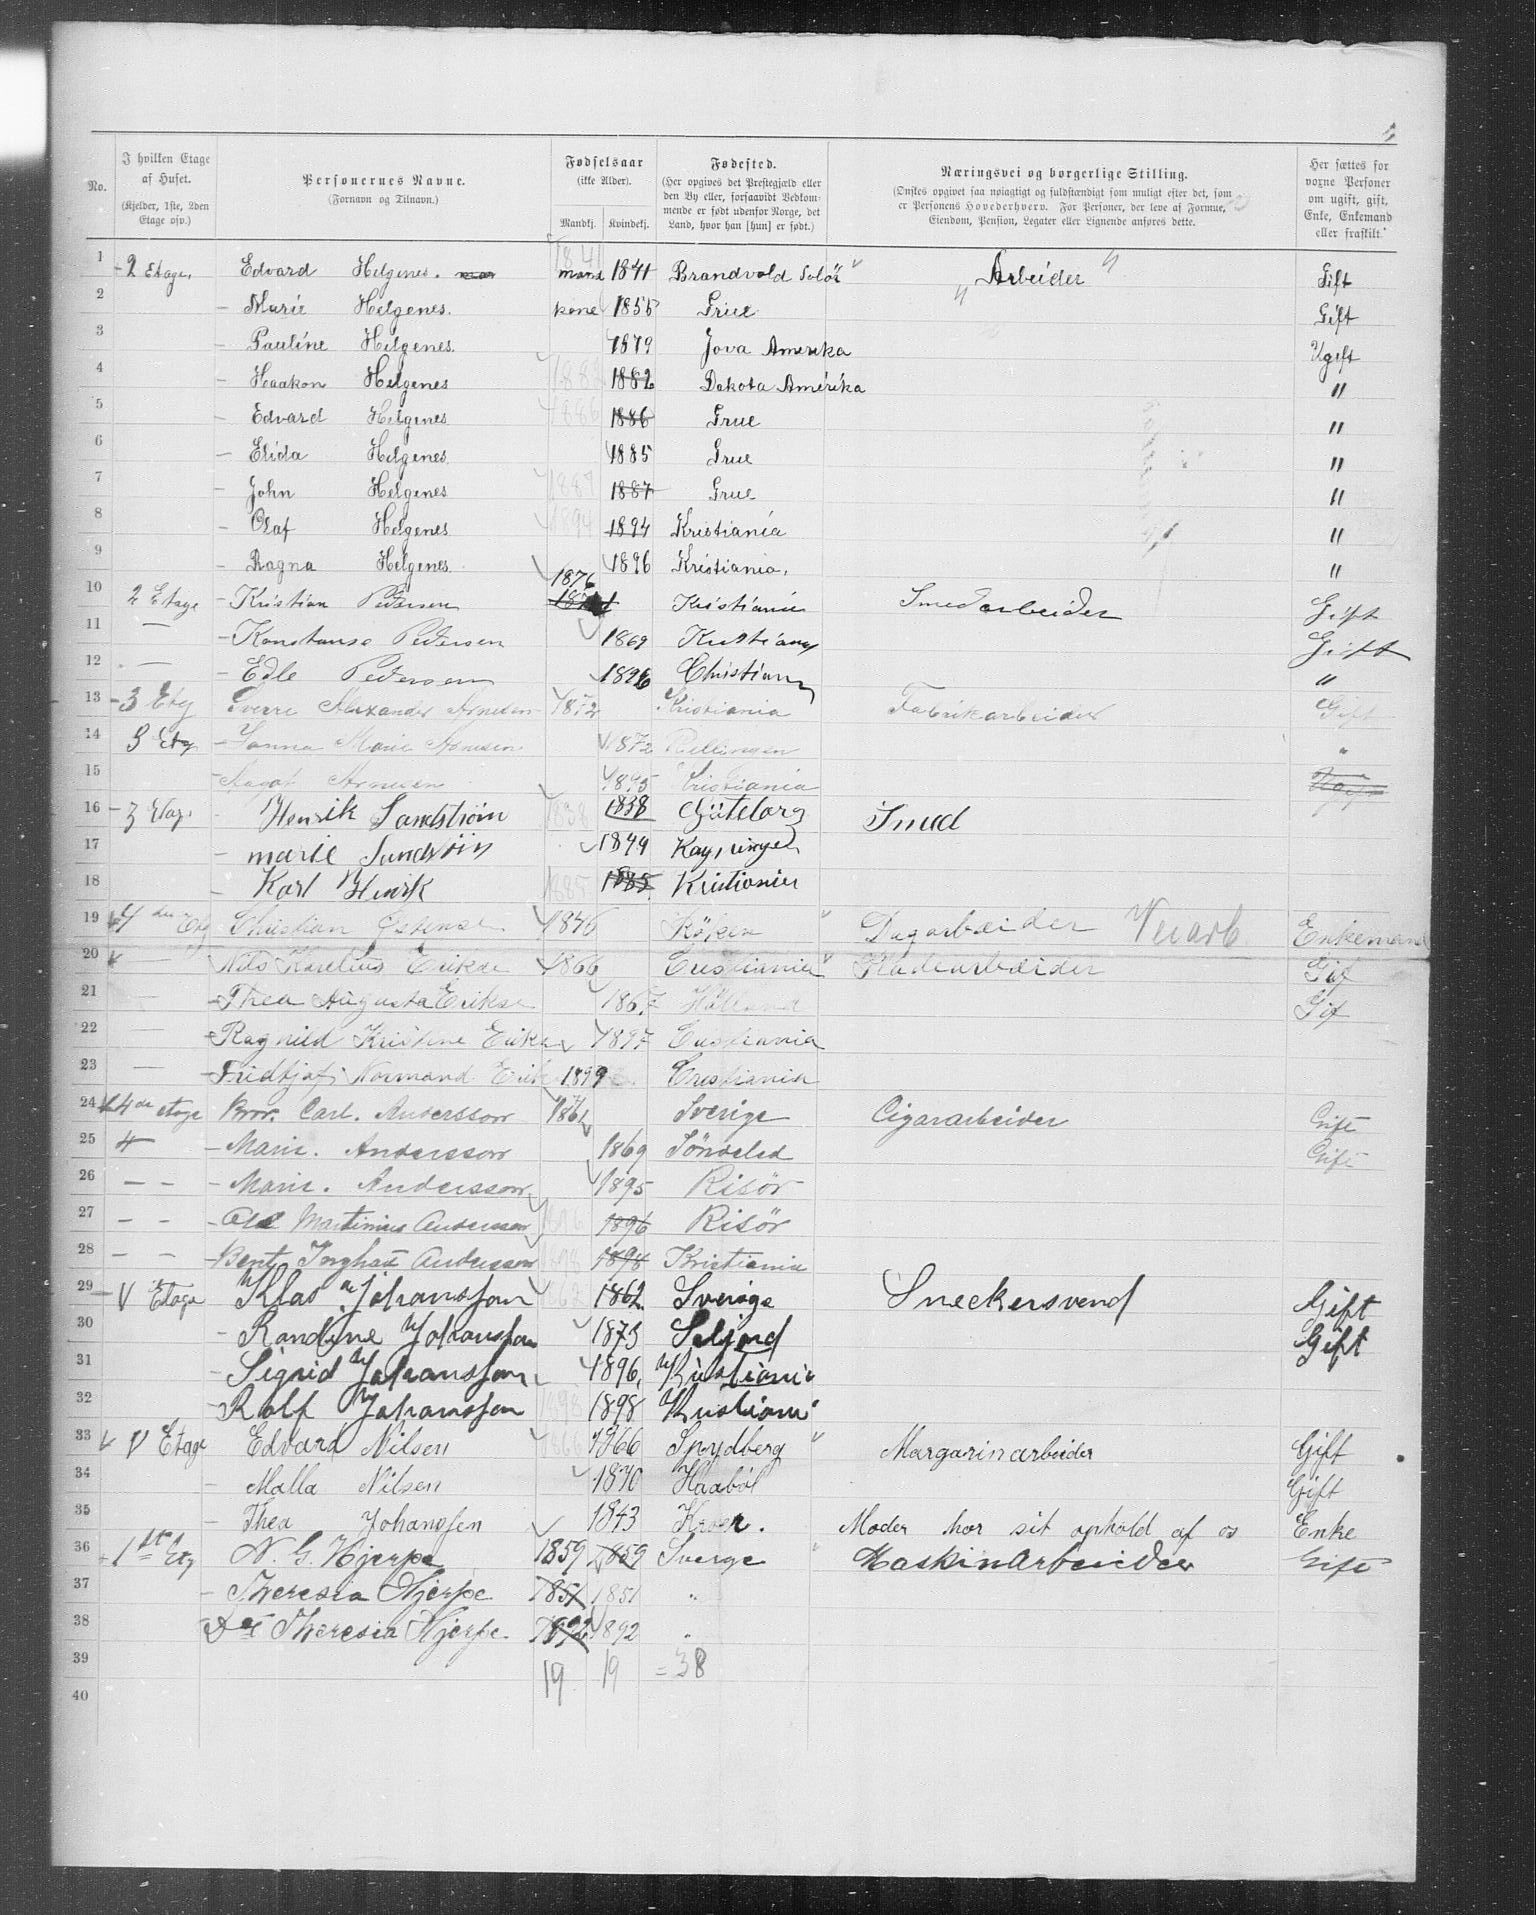 No. I hvilken Etage af Huset. (Kjelder, 1ste, 2den Etage osv.) Personernes Navne. (Fornavn og Tilnavn.) Fødselsaar (ikke Alder). Mandkj. Kvindekj. Fødested. (Her opgives det Prestegjæld eller den By eller, forsaavidt Vedkommende er født udenfor Norge, det Land, hvor han [hun] er født.) Næringsvei og borgerlige Stilling. (Ønskes opgivet saa nøiagtigt og fuldstændigt som muligt efter det, som er Personens Hovederhverv. For Personer, der leve af Formue, Eiendom, Pension, Legater eller Lignende anføres dette. Her sættes for voxne Personer om ugift, gift, Enke, Enkemand eller fraskilt.
1 2 Etage. Edvard Helgenes. mand 1841 Brandvold Solör Arbeider Gift
2 - Marie Helgenes. kone 1855 Grue Gift
3 - Pauline Helgenes. 1879 Jova Amerika Ugift
4 - Haakon Helgenes 1882 1882 Dakota Amerika "
5 - Edvard Helgenes 1886 1886 Grue "
6 - Elida Helgenes. 1885 Grue "
7 - John Helgenes 1887 1887 Grue "
8 - Olaf Helgenes 1894 1894 Kristiania "
9 - Ragna Helgenes. 1896 Kristiania. "
10 2 Etage - Kristian Pedersen 1876 Kristiania Smedarbeider Gift
11 — - Konstanse Pedersen 1869 Kristiania Gift
12 — - Edle Pedersen 1896 Christiania "
13 - 3 Etg Sverre Alexander Arnesen 1872 Kristiania Fabrikarbeider Gift
14 3 Etg - Marie Arnesen 1872 Rellingen "
15 - Arnesen 1895 Cristiania
16 - 3 Etag. Henrik Sandström 1838 1838 Göteborg Smed
17 - marie Sundströin 1849
18 - Karl Henrik 1885 1885 Kristiania
19 4 de Etg Christian 1846 Röken Dagarbeider Veiarb. Enkemand
20 — Nils Karelius Erikse 1866 Cristiania Gif
21 — - Thea Augusta Erikse 1867 Holland Gif
22 — - Ragnild Kristine Erikse 1897 Cristiania
23 — - Fridtjof Normand Erik 1899 Cristiania
24 4de etage Bror. Carl. Andersson 1861 Sverige Cigararbeider Gift
25 4 - Marie. Andersson 1869 Söndeled Gift
26 — — - Marie. Andersson 1895 Risör
27 — — - Martinius Andersson 1896 1896 Risör
28 — — - Bent Andersson 1898 1898 Kristiania
29 - V Etage Klas Johansson 1862 1862. Sverige Sneckersvend Gift
30 - Randine Johansson 1873 Seljord Gift
31 - Sigrid Johansson 1896. Kristiania
32 - Rolf Johansson 1898 1898 Kristiania
33 V Etage Edvard Nilsen 1866 1866 Spydberg Margarinarbeider Gift
34 - Malla Nilsen 1870 Haaböl Gift
35 - Thea Johansen 1843 Kroer. Moder har sit ophold af os Enke
36 1ste Etg N. G. Hjerpe 1859 1859 Sverge Maskinarbeider Gift
37 - Theresia Hjerpe 1851 1851 "
38 Theresia Hjerpe 1892 1892 "
39 19 19 = 38
40